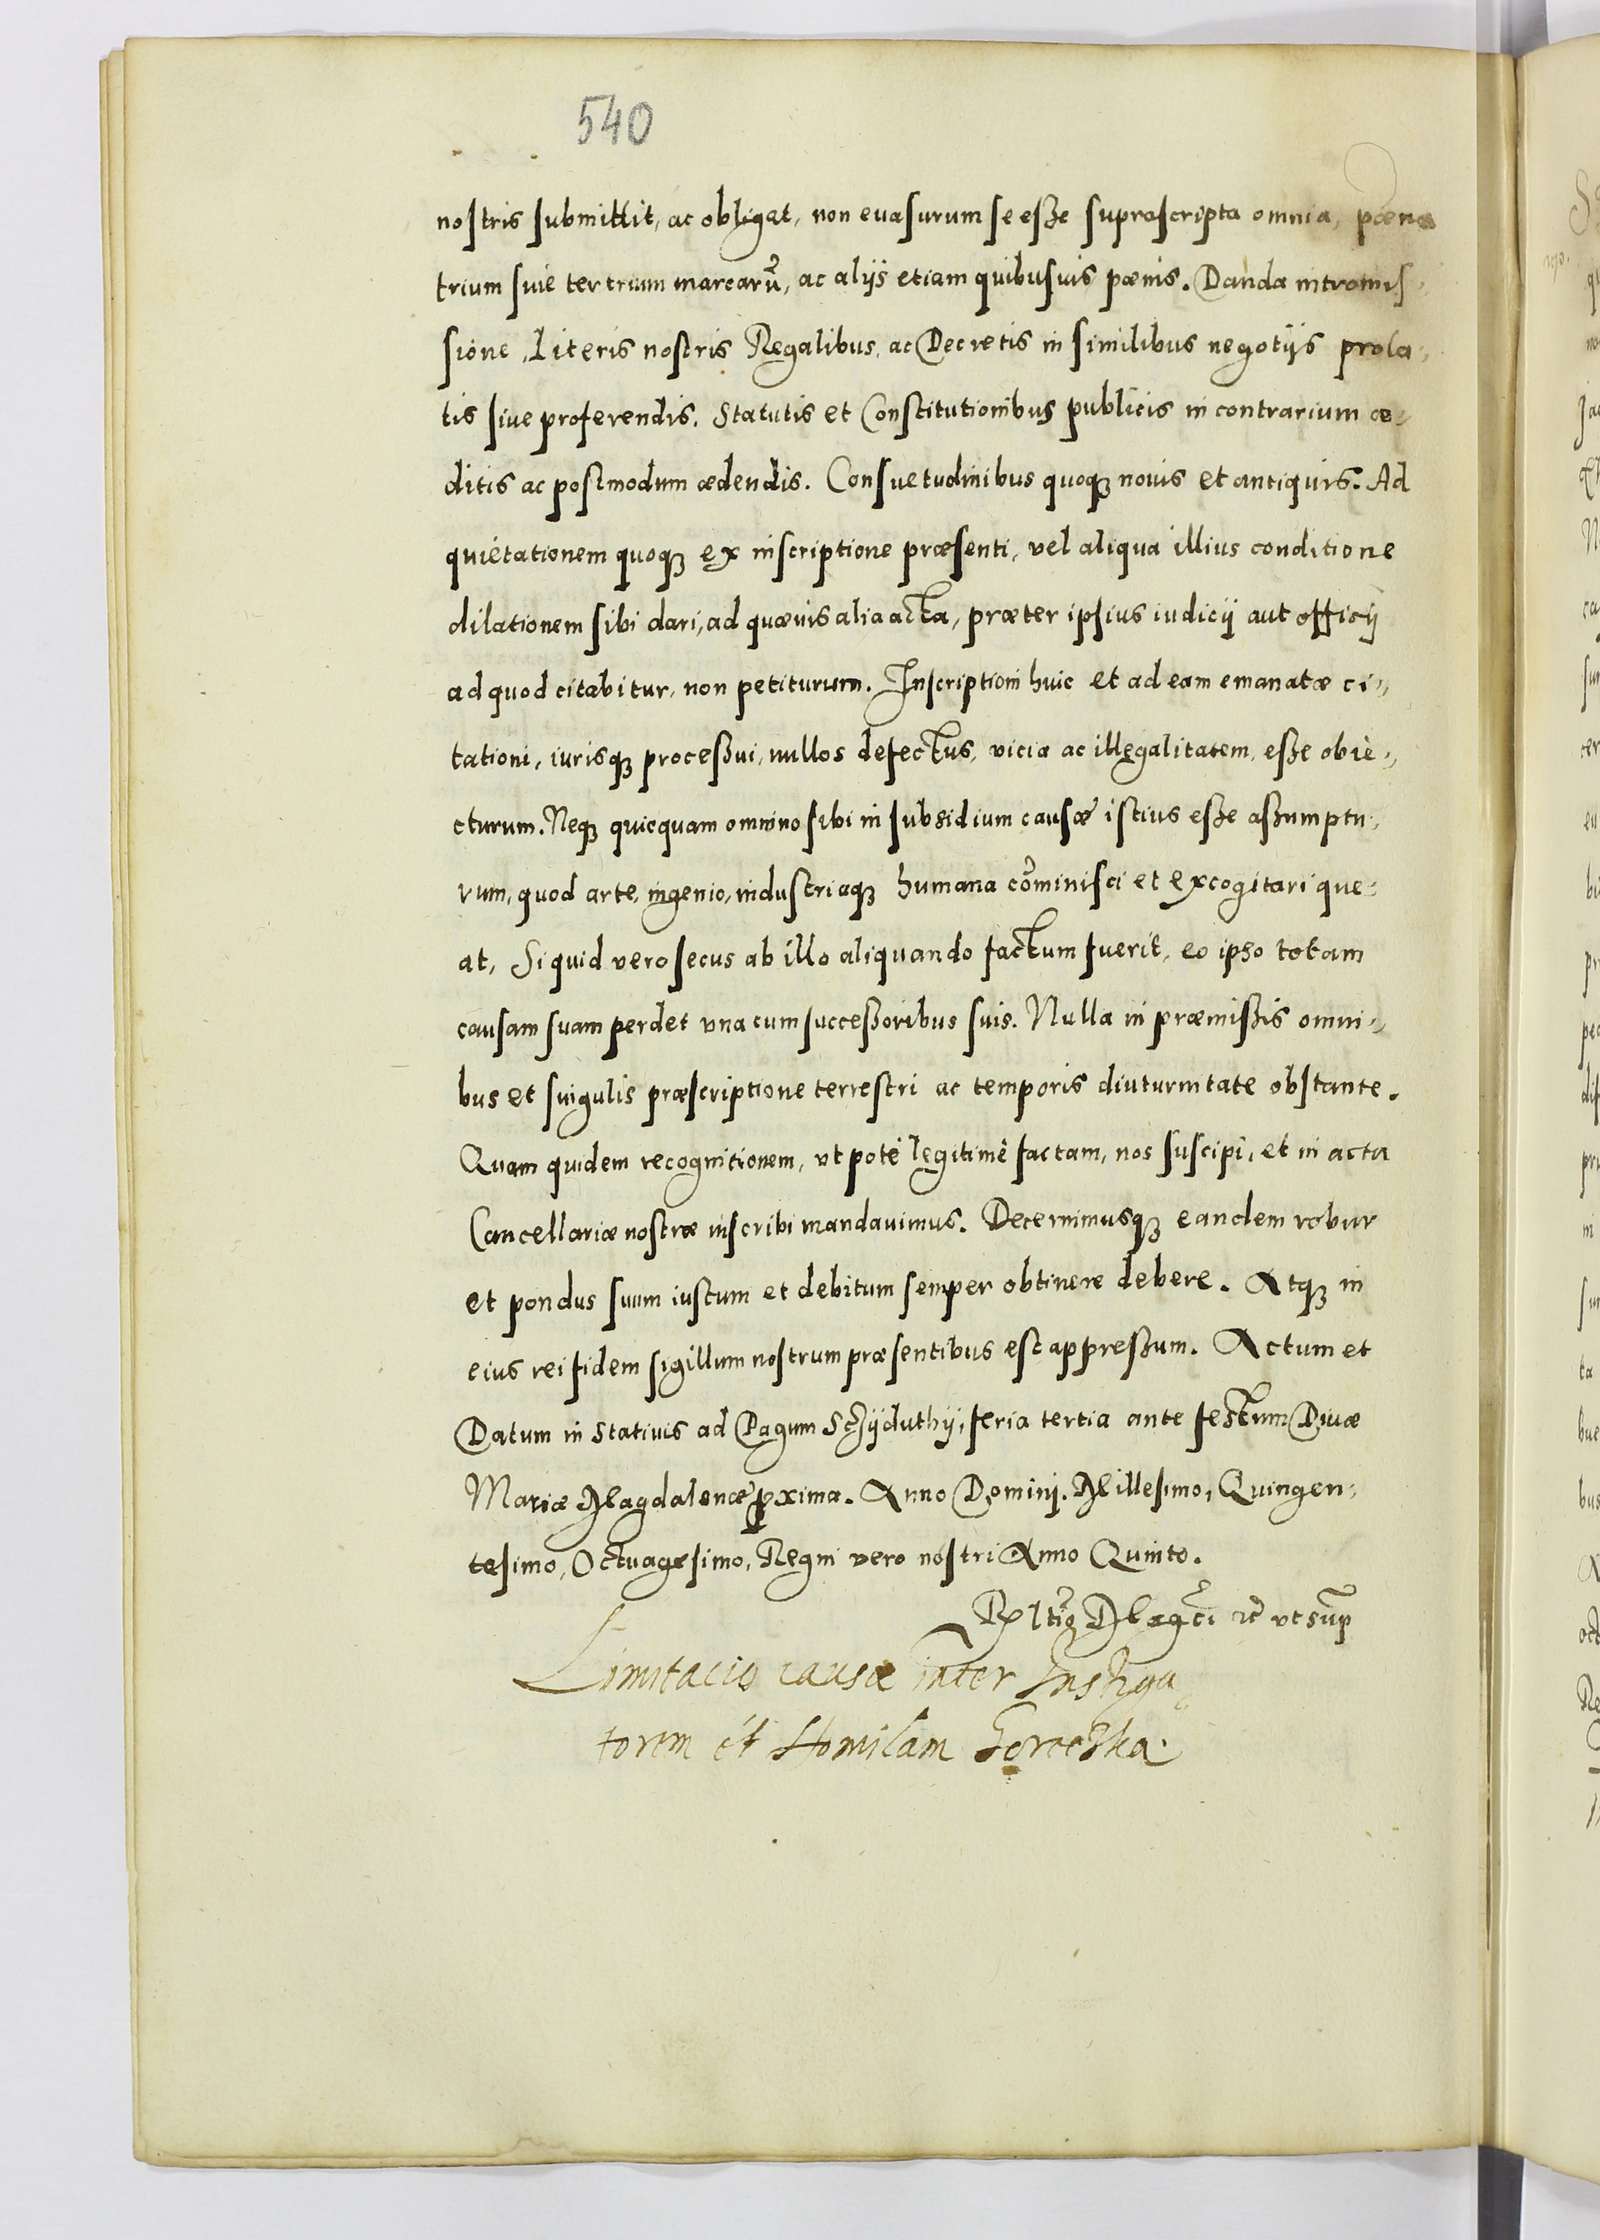 540
nostris submittit, ac obligat, non euasurum se esse suprascripta omnia, pæna
trium siue ter trium marcarũ, ac alijs etiam quibusuis pænis. Danda intromis-
sione, Literis nostris Regalibus, ac Decretis in similibus negotijs prola-
tis siue proferendis. Statutis et Constitutionibus publicis in contrarium æ-
ditis ac postmodum ædendis. Consuetudinibus quoqꝫ nouis et antiquis. Ad
quietationem quoqꝫ ex inscriptione præsenti, vel aliqua illius conditione
dilationem sibi dari, ad quæuis alia acta, præter ipsius iudicij aut officij
ad quod citabitur, non petiturum. Inscriptioni huic et ad eam emanatæ ci-
tationi, iurisqꝫ processui, nullos defectus, vicia ac illegalitatem, esse obie-
cturum. Neqꝫ quicquam omnino sibi in subsidium causæ istius esse assumptu-
rum, quod arte, ingenio, industriaqꝫ humana cõminisci et excogitari que-
at, Si quid vero secus ab illo aliquando factum fuerit, eo ipso totam
causam suam perdet vna cum successoribus suis. Nulla in præmissis omni-
bus et singulis præscriptione terrestri ac temporis diuturnitate obstante.
Quam quidem recognitionem, vt pote legitimè factam, nos suscipi, et in acta
Cancellariæ nostræ inscribi mandauimus. Decernimusqꝫ eandem robur
et pondus suum iustum et debitum semper obtinere debere. Atqꝫ in
eius rei fidem sigillum nostrum præsentibus est appressum. Actum et
Datum in Statiuis ad Pagum Schijduthij, feria tertia ante festum Diuæ
Mariæ Magdalenæ ꝓxima. Anno Domini. Millesimo, Quingen-
tesimo, Octuagesimo, Regni vero nostri Anno Quinto.
vt sup
Limitacio causæ inter Instiga
torem et Homilam